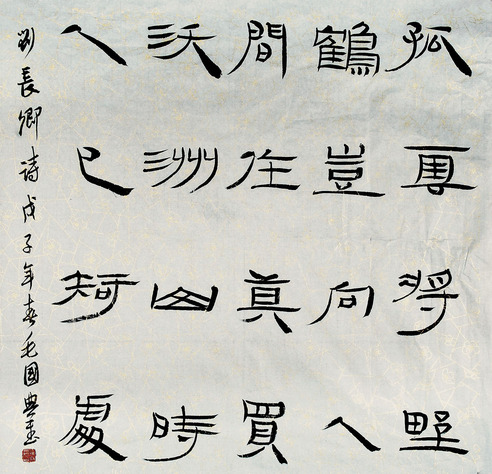 孤雲將野
鶴豈向人
間住莫買
沃洲山時
人已知處
劉長卿詩戊子年春毛國典書